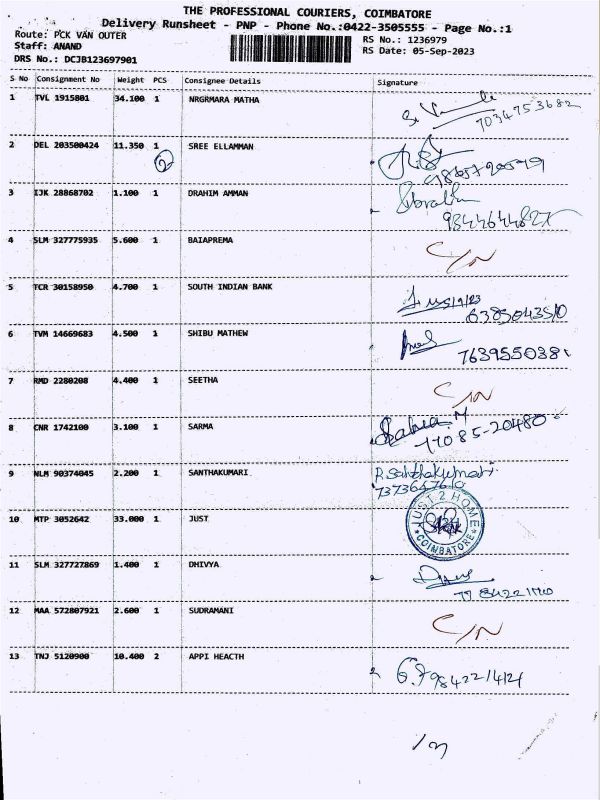 THE PROFESSIONAL COURIERS, COIMBATORE
Delivery Runsheet - PNP - Phone No.:0422-3505555 - Page No.:1
Route: PCK VAN OUTER
Staff: ANAND
DRS No.: DCJB123697901
RS No.: 1236979
RS Date: 05-Sep-2023
S No Consignment No Weight PCS Consignee Details Signature
1 TVL 1915801 34.100 1 NRGRMARA MATHA
7034753682
2 DEL 203500424 11.350 1 SREE ELLAMMAN
2
3 IJK 28868702 1.100 1 DRAHIM AMMAN
4 SLM 327775935 5.600 1 BAIAPREMA C/N
5 TCR 30158950 4.700 1 SOUTH INDIAN BANK
6385043510
6 TVM 14669683 4.500 1 SHIBU MATHEW
7639550381
7 RMD 2280208 4.400 1 SEETHA C/N
8 CNR 1742100 3.100 1 SARMA
85-20480
9 NLM 90374045 2.200 1 SANTHAKUMARI
R. Santhakumari
7373647610
10 MTP 3052642 33.000 1 JUST
JUST 2 HOME
COIMBATORE
11 SLM 327727869 1.400 1 DHIVYA
12 MAA 572807921 2.600 1 SUDRAMANI C/N
13 TNJ 5120900 10.400 2 APPI HEACTH
9842214121